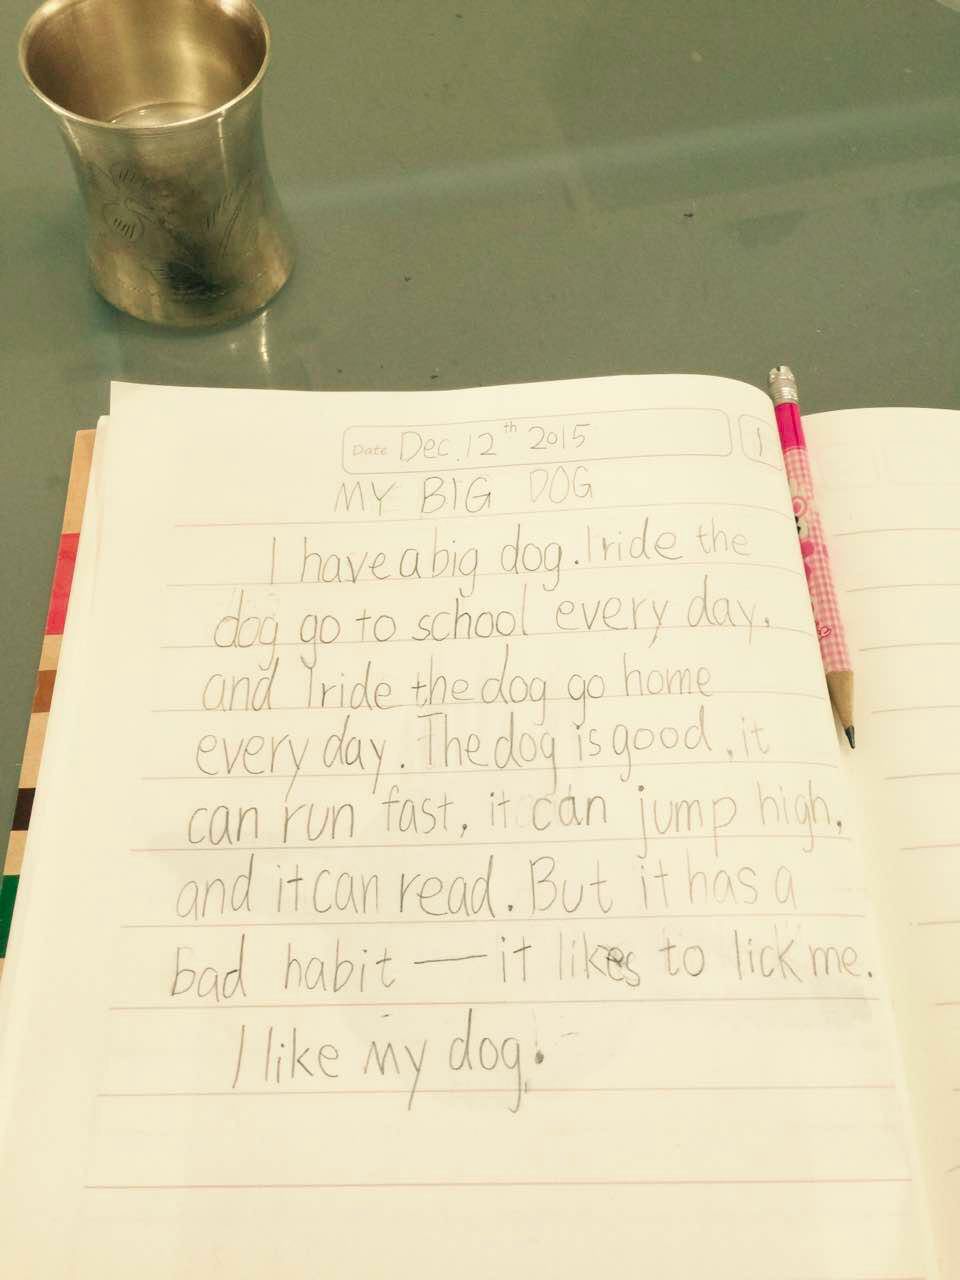 Date Dec. 12th 2015
1
MY BIG DOG
I have a big dog. I ride the
dog go to school every day,
and I ride the dog go home
every day. The dog is good, it
can run fast, it can jump high,
and it can read. But it has a
bad habit — it likes to lick me.
I like my dog.